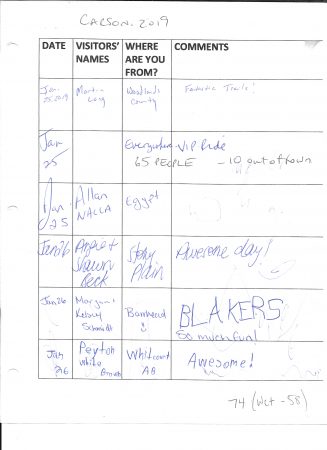 CARSON 2019
DATE VISITORS' NAMES WHERE ARE YOU FROM? COMMENTS
Jan 25, 2019 Martin Long Woodlands County Fantastic Trails!
Jan 25 Everywhere VIP Ride
65 PEOPLE - 10 out of town
Jan 25 Allan NALLA Egypt
Jan 26 Angie + Shawn Beck Stony Plain Awesome day!
Jan 26 Kelsey Schmidt Barrhead BLAKERS
So much fun!
Jan 26 Peyton White Whitecourt AB Awesome!
74 (Wct - 58)